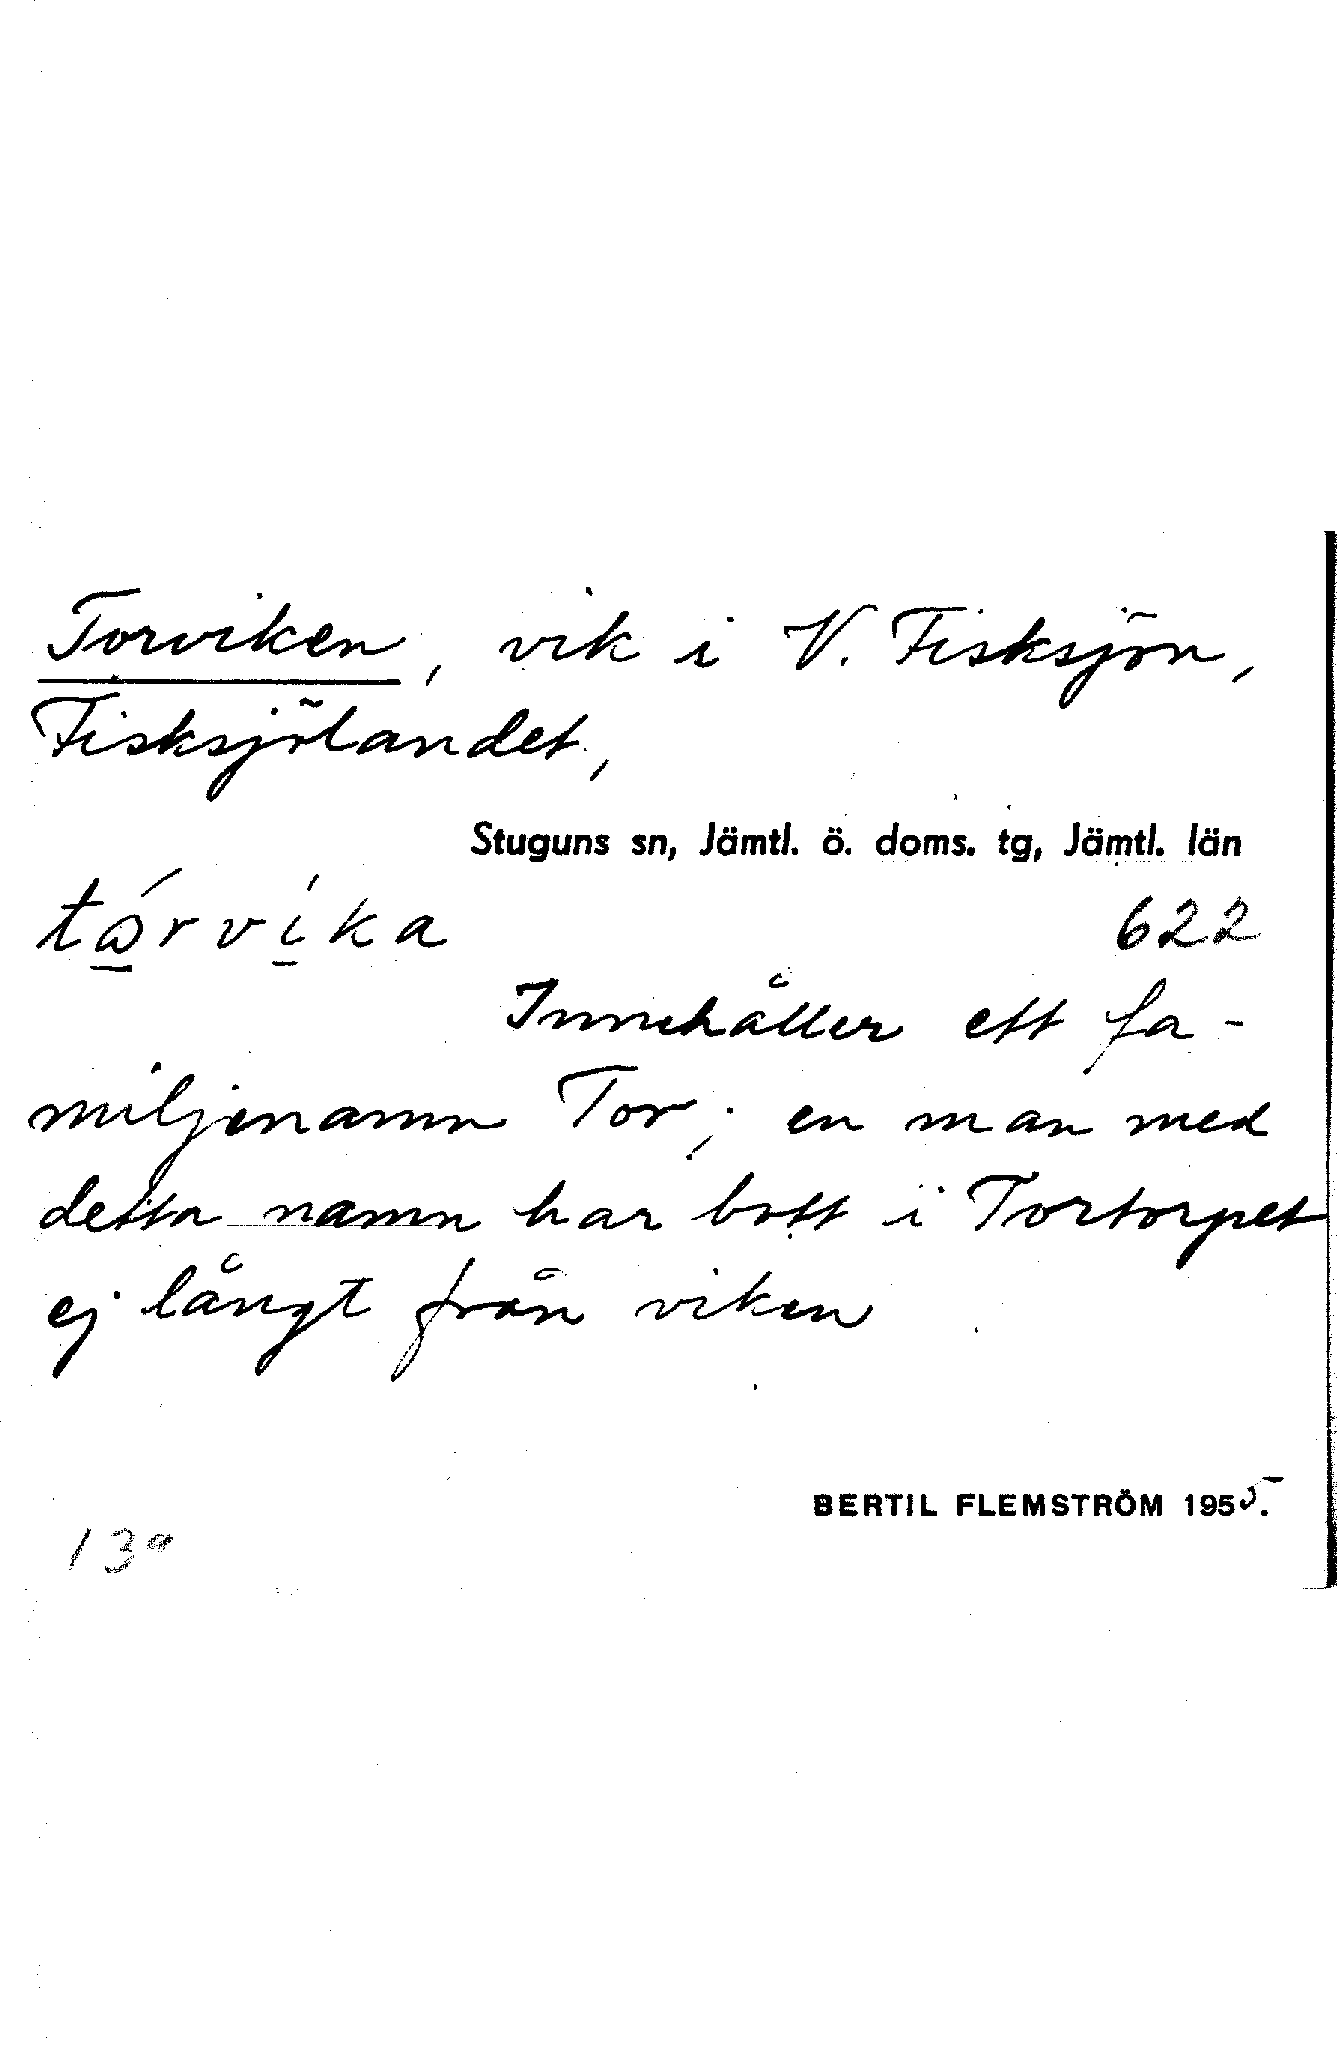 Torviken, vik i V. Fisksjön,
Fisksjölandet,
Stuguns sn, Jämtl. ö. doms. tg, Jämtl. län
tώ̱rví̱ka 622
Innehåller ett fa-
miljenamn Tor; en man med
detta namn har bott i Tortorpet
ej långt från viken
BERTIL FLEMSTRÖM 1955.
13a